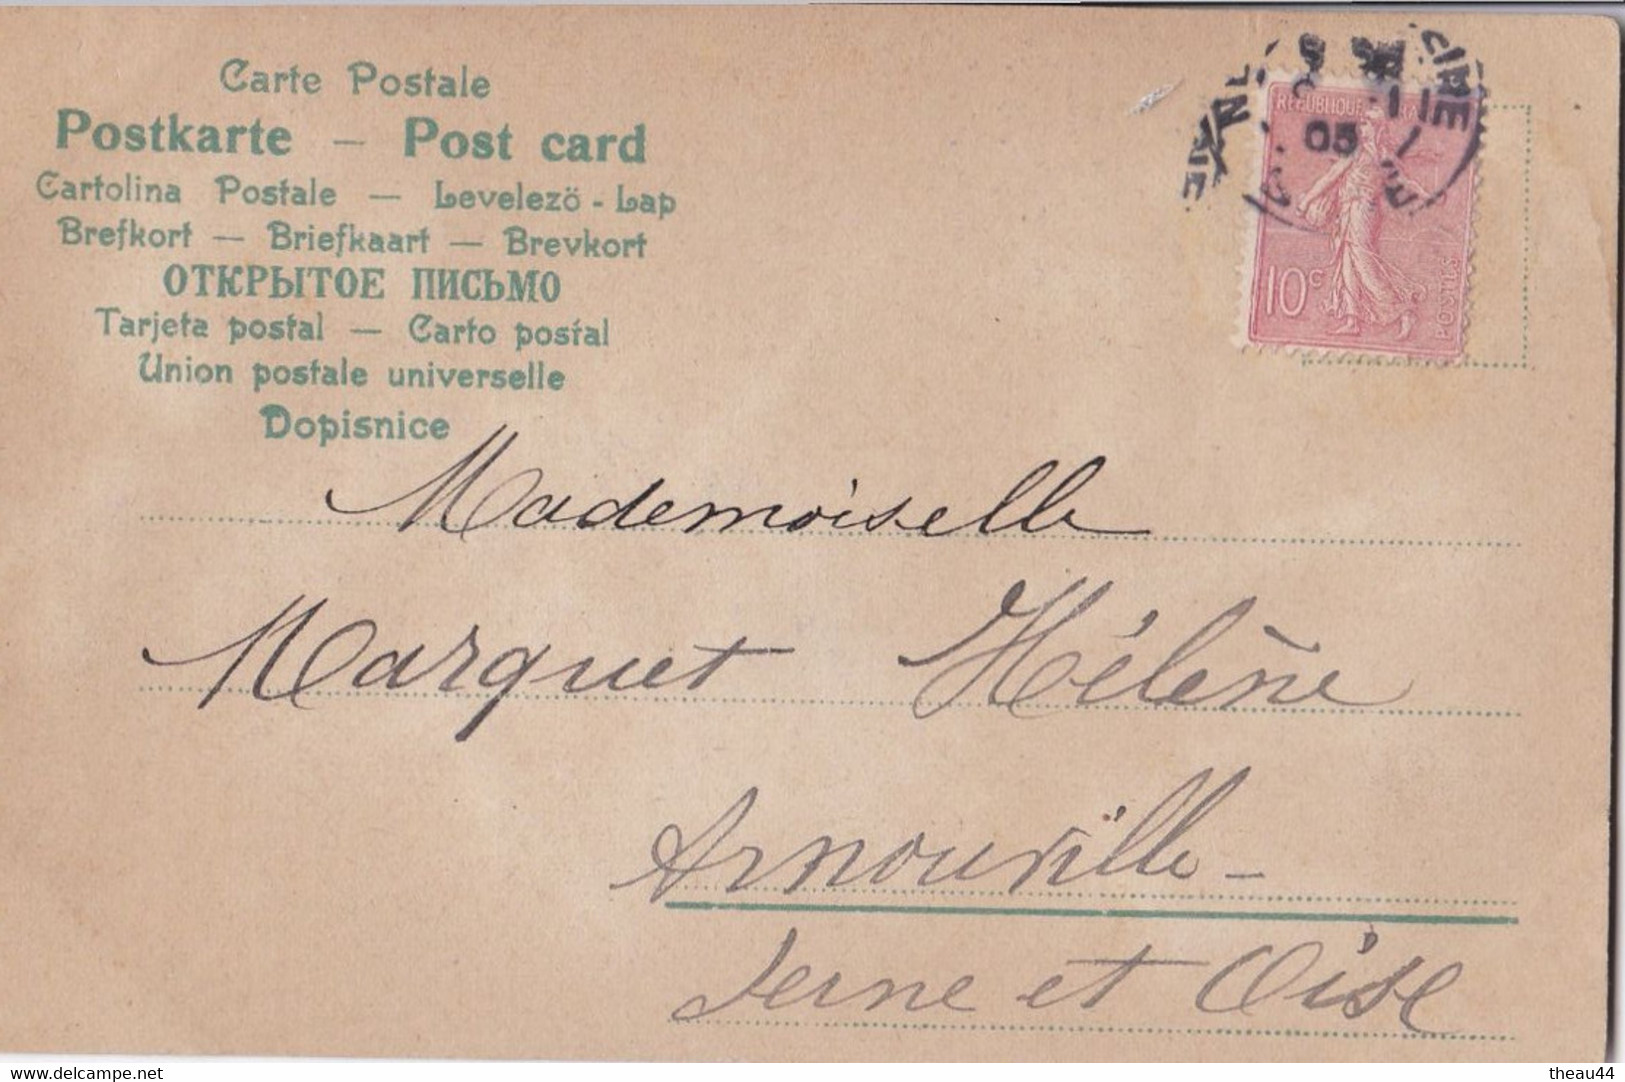 Carte Postale
Postkarte — Post card
Cartolina Postale — Levelezö-Lap
Brefkort — Briefkaart — Brevkort
ОТКРЫТОЕ ПИСЬМО
Tarjeta postal — Carto postal
Union postale universelle
Dopisnice
REPUBLIQUE
05
10c
POSTES
Mademoiselle
Marquet Hélène
Arnouville -
Seine et Oise
delcampe.net
theau44